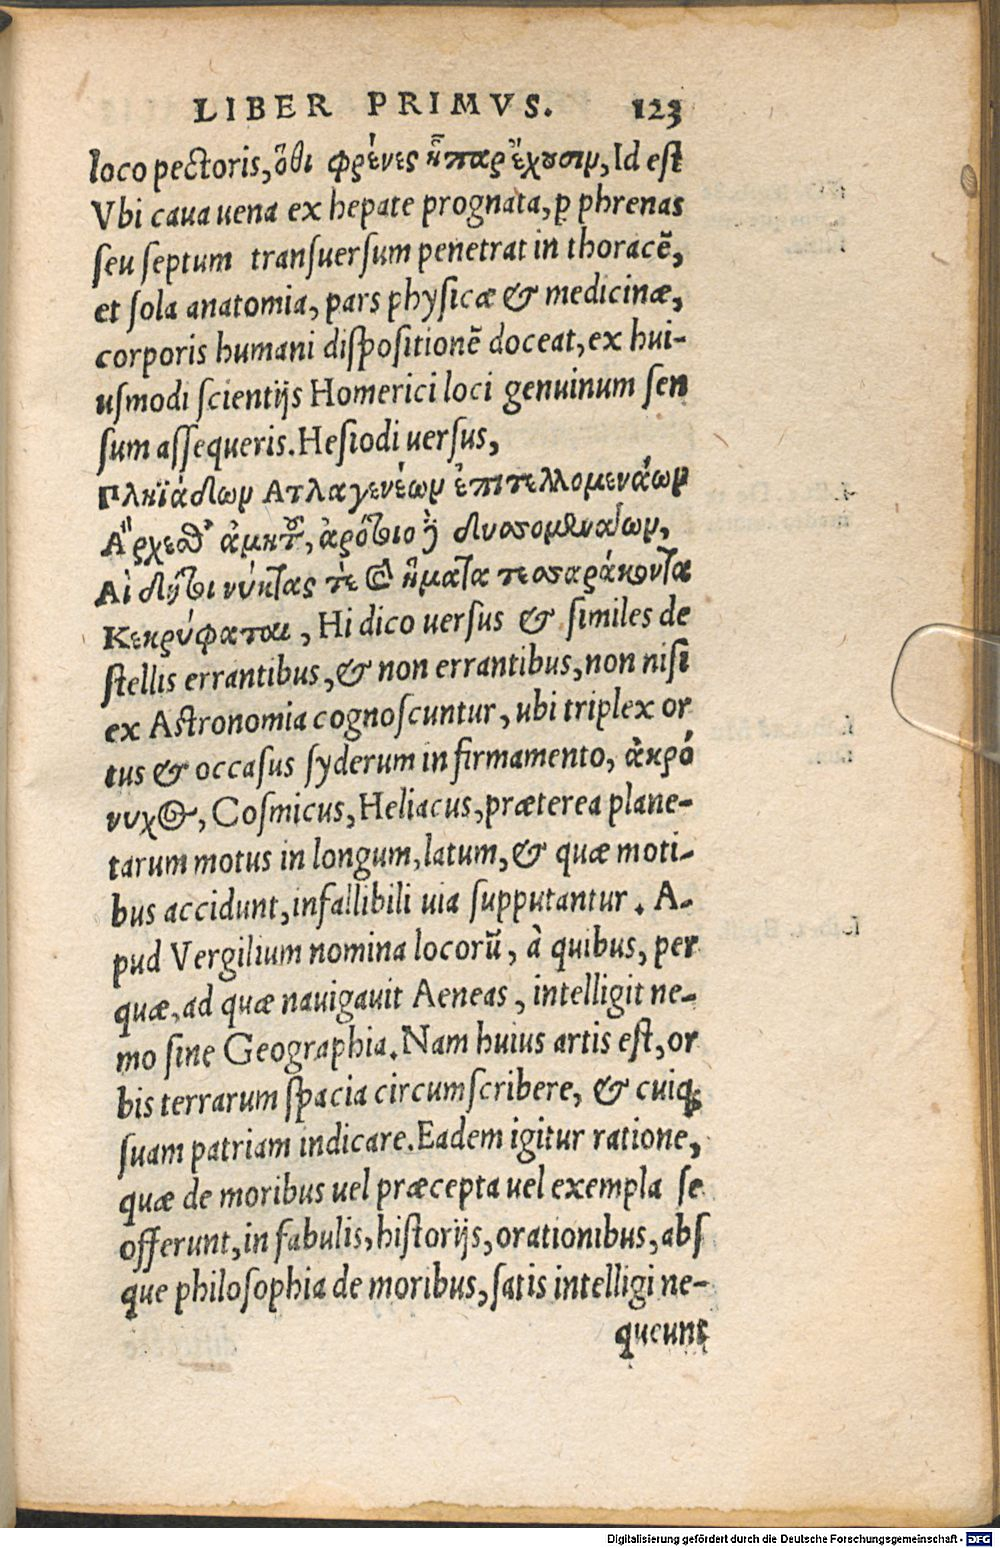 LIBER PRIMVS. 123
loco pectoris, ὅθι φρένες ἧπαρ ἔχουσιν, Id est
Vbi caua uena ex hepate prognata, ꝑ phrenas
seu septum transuersum penetrat in thoracē,
et sola anatomia, pars physicæ & medicinæ,
corporis humani dispositionē doceat, ex hui-
usmodi scientijs Homerici loci genuinum sen
sum assequeris. Hesiodi uersus,
Πληϊάδων Ατλαγενέων ἐπιτελλομενάων
Ἄρχεσθ' ἀμητοῦ, ἀρότοιο ἢ δυσομενάων,
Αἱ δήτοι νύκτας τὲ καὶ ἤματα τεσσαράκοντα
Κεκρύφαται, Hi dico uersus & similes de
stellis errantibus, & non errantibus, non nisi
ex Astronomia cognoscuntur, ubi triplex or
tus & occasus syderum in firmamento, ἀκρό
νυχος, Cosmicus, Heliacus, præterea plane-
tarum motus in longum, latum, & quæ moti-
bus accidunt, infallibili uia supputantur. A-
pud Vergilium nomina locorū, à quibus, per
quæ, ad quæ nauigauit Aeneas, intelligit ne-
mo sine Geographia. Nam huius artis est, or
bis terrarum spacia circumscribere, & cuiqꝫ
suam patriam indicare. Eadem igitur ratione,
quæ de moribus uel præcepta uel exempla se
offerunt, in fabulis, historijs, orationibus, abs
que philosophia de moribus, satis intelligi ne-
queunt
Digitalisierung gefördert durch die Deutsche Forschungsgemeinschaft - DFG